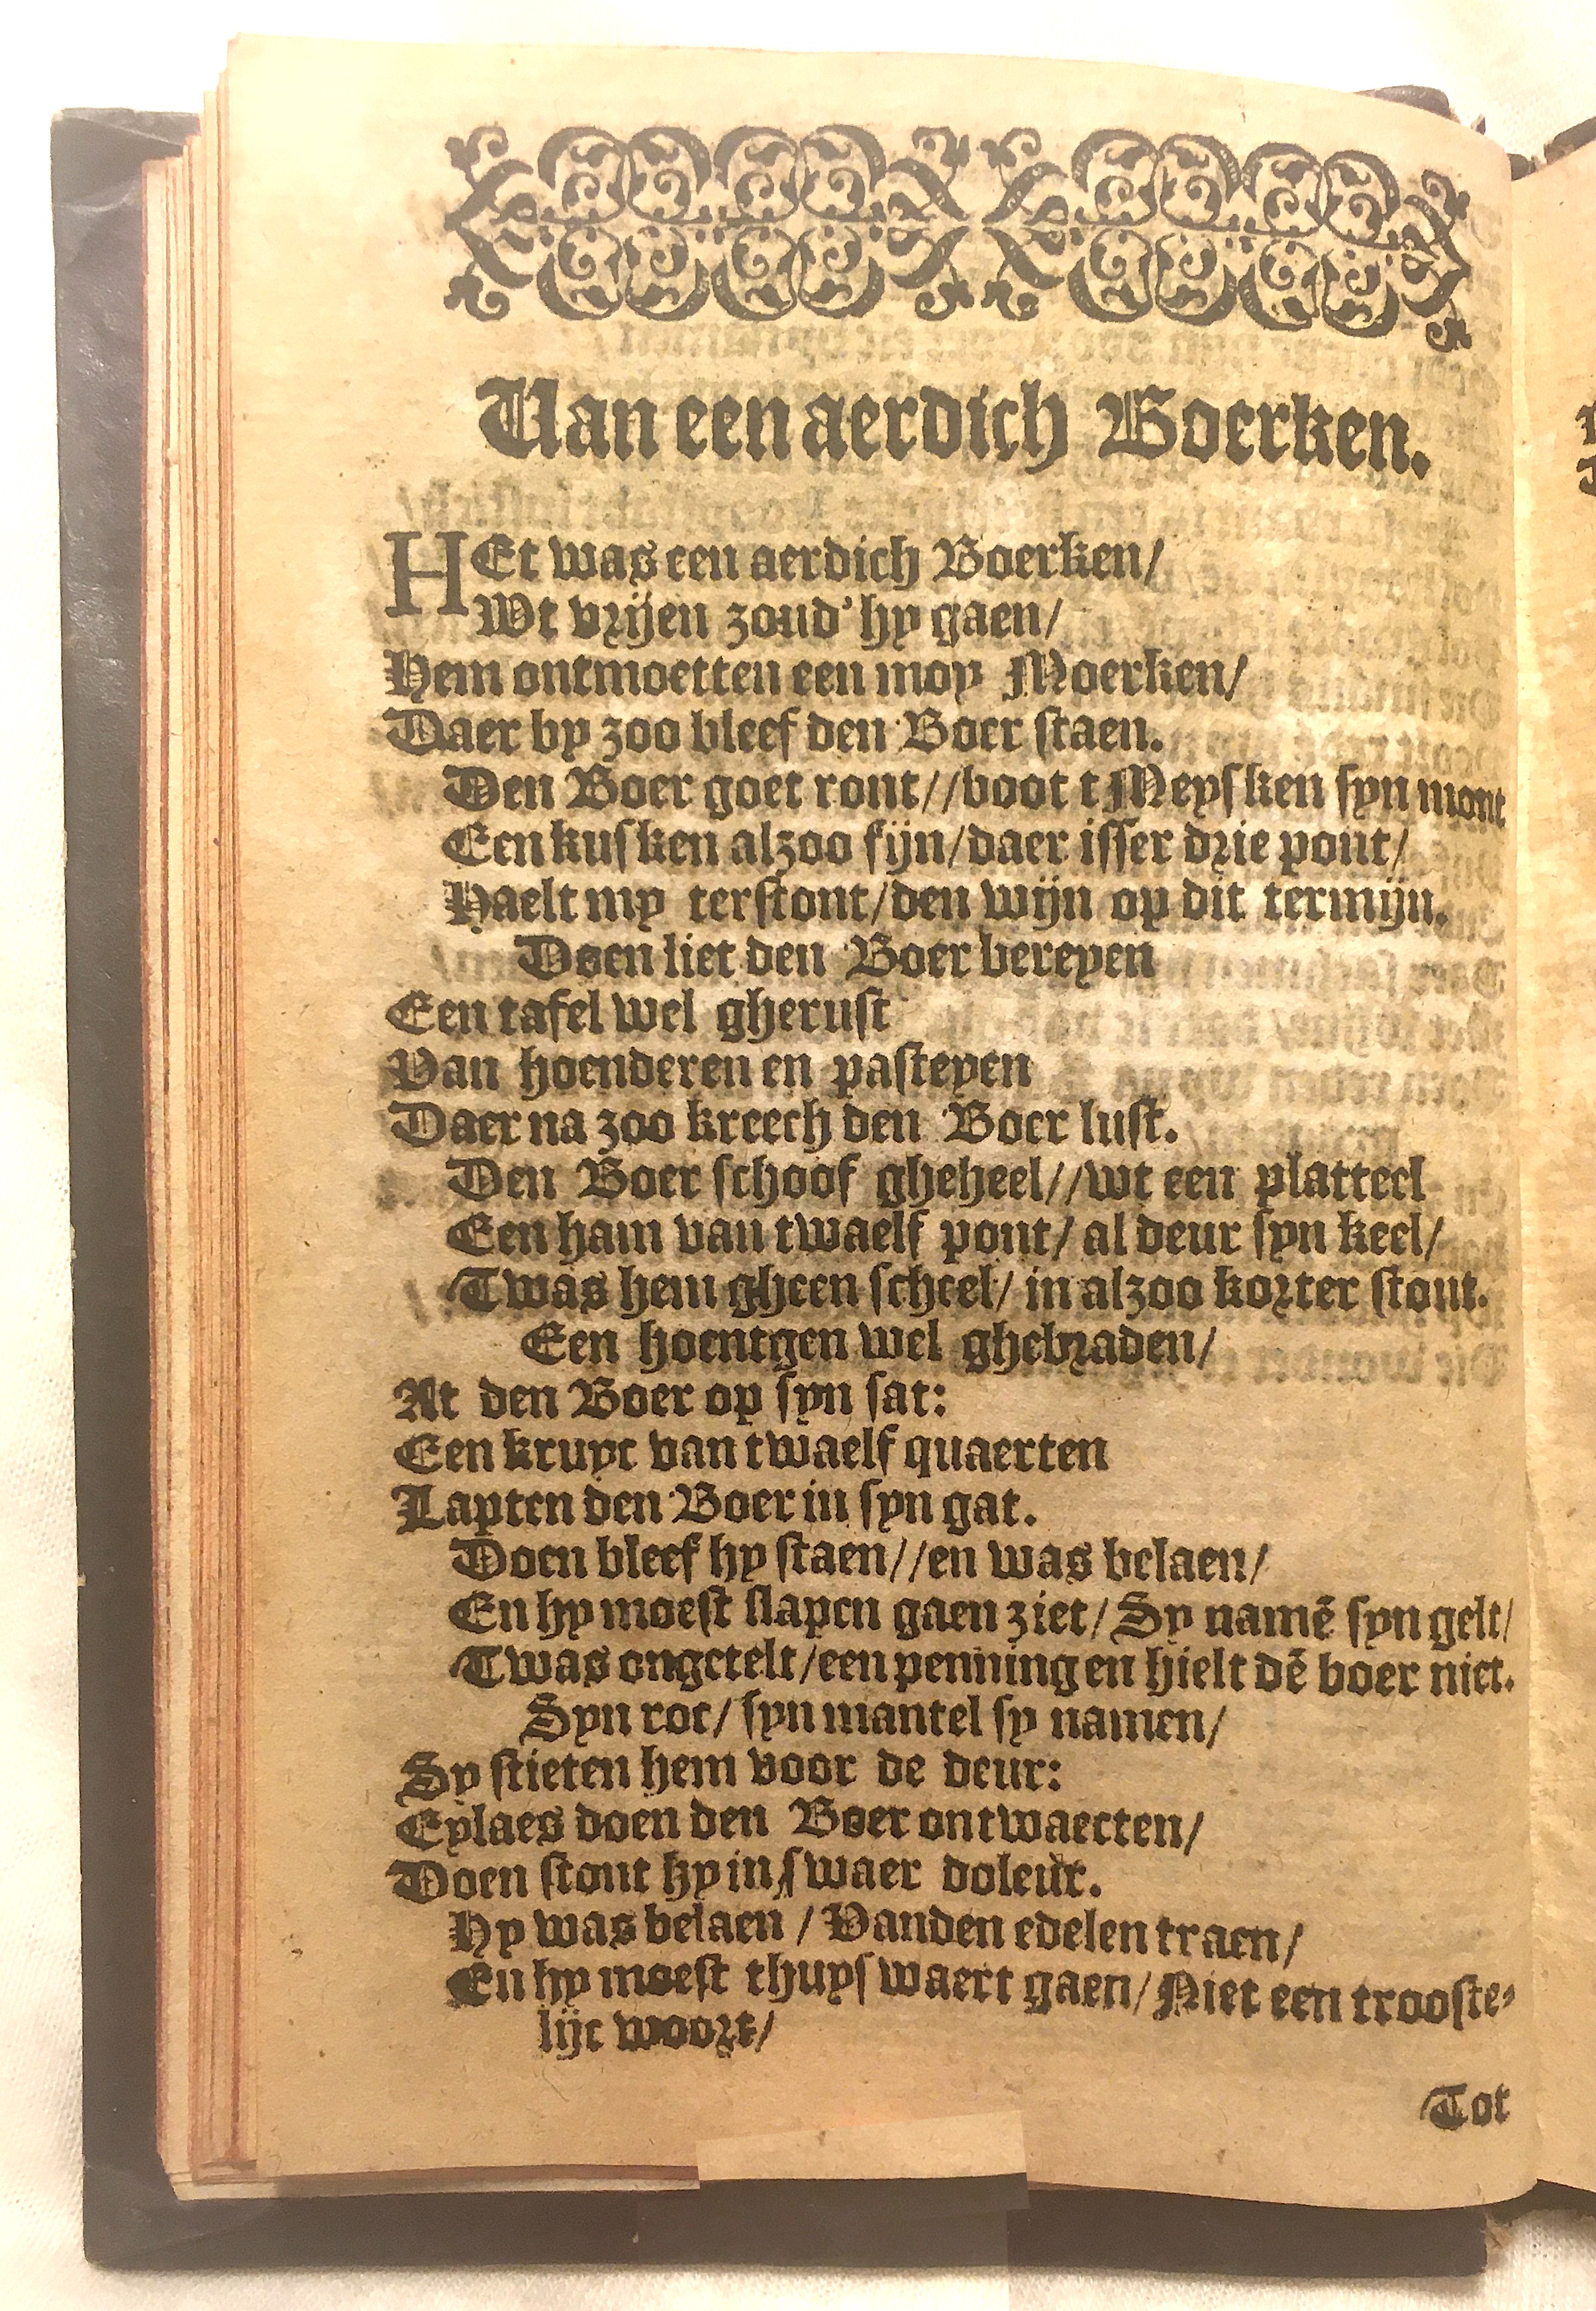 Van een aerdich Boerken.
HEt was een aerdich Boerken/
Wt vrijen zoud' hy gaen/
Hem ontmoetten een moy Moerken/
Daer by zoo bleef den Boer ſtaen.
Den Boer goet ront//boot t Meyſken ſyn mont
Een kuſken alzoo fijn/daer iſſer drie pont/
Haelt my terſtont/den wijn op dit termijn.
Doen liet den Boer bereyen
Een tafel wel gheruſt
Van hoenderen en paſteyen
Daer na zoo kreech den Boer luſt.
Den Boer ſchoof gheheel//wt een platteel
Een ham van twaelf pont/ al deur ſyn keel/
Twas hem gheen ſcheel/ in alzoo korter ſtont.
Een hoentgen wel ghebraden/
At den Boer op ſyn ſat:
Een kruyc van twaelf quaerten
Lapten den Boer in ſyn gat.
Doen bleef hy ſtaen//en was belaen/
En hy moeſt ſlapen gaen ziet/Sy namē ſyn gelt/
Twas ongetelt/een penning en hielt dē boer niet.
Syn roc/ ſyn mantel ſy namen/
Sy ſtieten hem voor de deur:
Eylaes doen den Boer ontwaecten/
Doen ſtont hy in ſwaer doleur.
Hy was belaen / Vanden edelen traen/
En hy moeſt thuyſ waert gaen/Niet een trooſte-
lijc woort/
Tot